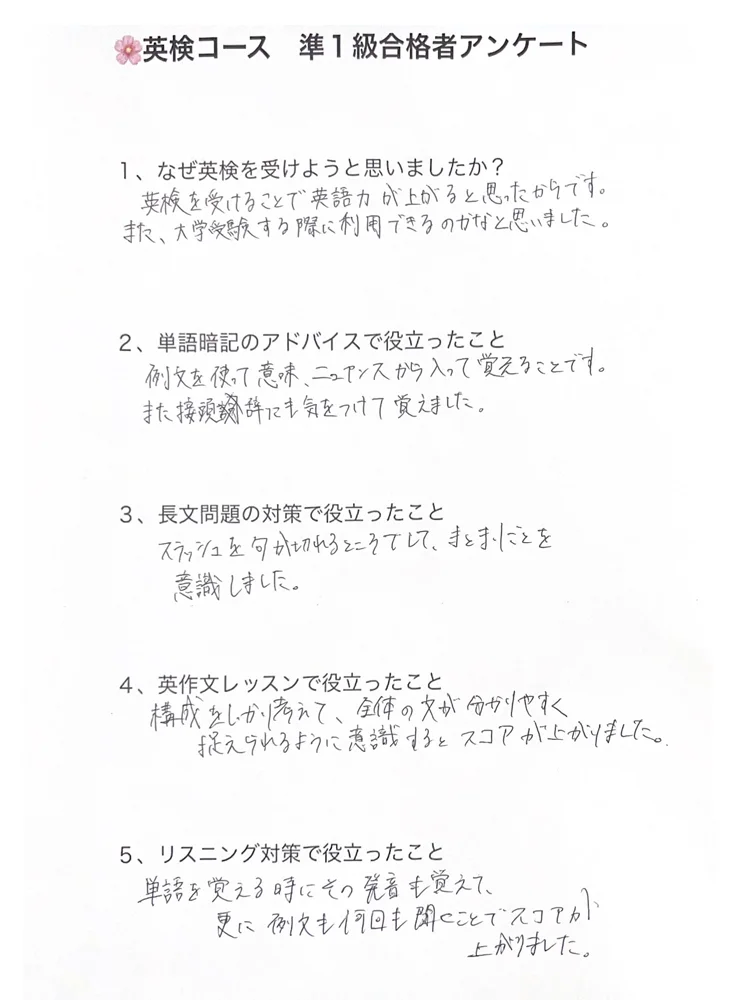 🌸英検コース 準1級合格者アンケート
1、なぜ英検を受けようと思いましたか？
英検を受けることで英語力が上がると思ったからです。
また、大学受験する際に利用できるのかなと思いました。
2、単語暗記のアドバイスで役立ったこと
例文を使って意味、ニュアンスから入って覚えることです。
また接頭辞にも気をつけて覚えました。
3、長文問題の対策で役立ったこと
スラッシュを句が切れるところでして、まとまりごとを
意識しました。
4、英作文レッスンで役立ったこと
構成をしっかり考えて、全体の文が分かりやすく
捉えられるように意識するとスコアが上がりました。
5、リスニング対策で役立ったこと
単語を覚える時にその発音も覚えて、
更に例文も何回も聞くことでスコアが
上がりました。